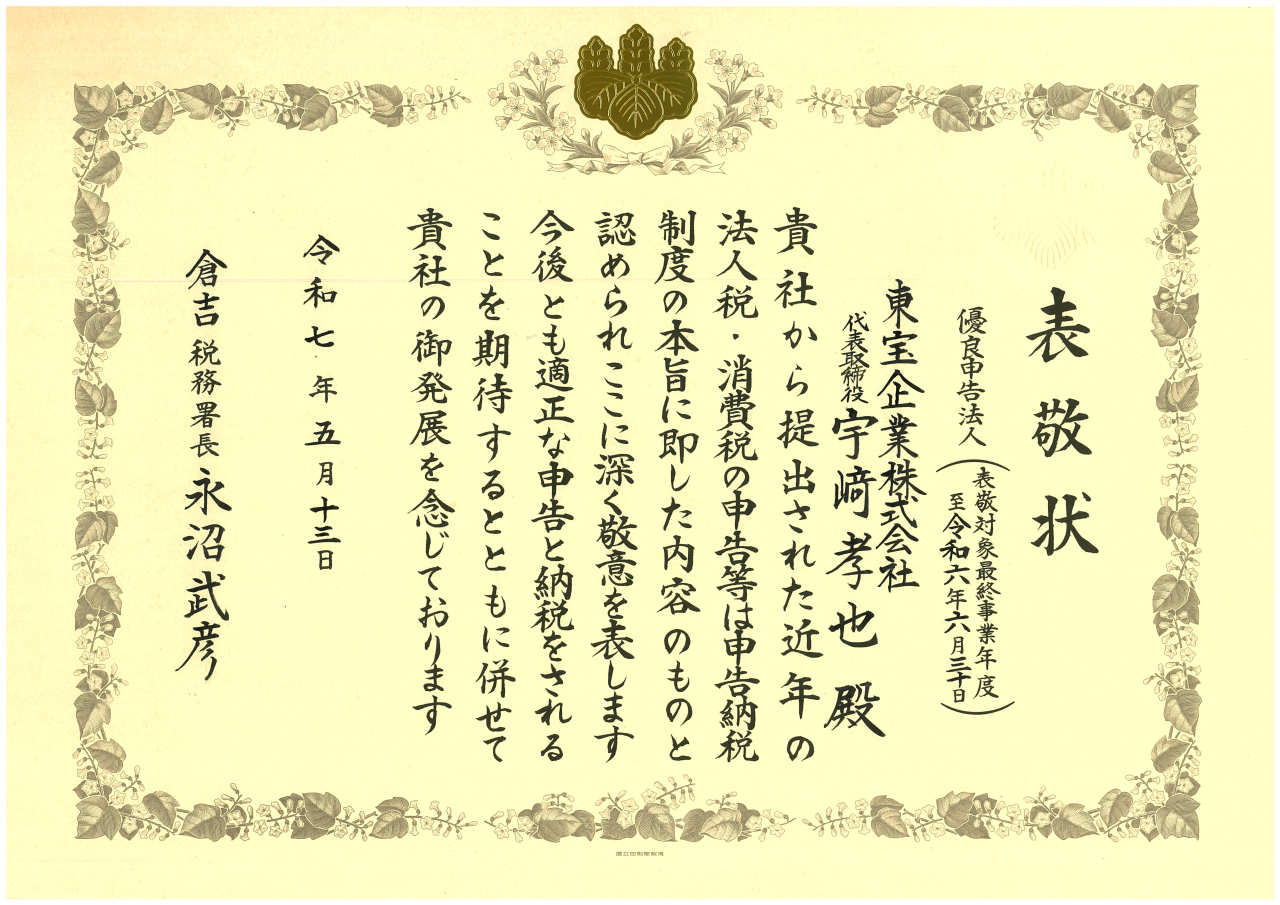 表敬状
優良申告法人
表敬対象最終事業年度
至令和六年六月三十日
東宝企業株式会社
代表取締役宇﨑孝也殿
貴社から提出された近年の
法人税・消費税の申告等は申告納税
制度の本旨に即した内容のものと
認められここに深く敬意を表します
今後とも適正な申告と納税をされる
ことを期待するとともに併せて
貴社の御発展を念じております
令和七年五月十三日
倉吉税務署長永沼武彦
国立印刷局製造